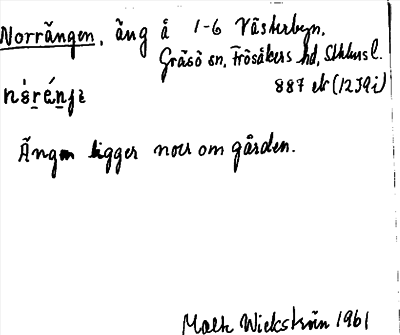 Norrängen, äng å 1-6 Västerbyn.
Gräsö sn, Frösåkers hd, Sthlms l.
887 eb (12J9i)
Ängen ligger norr om gården.
Malte Wickström 1961